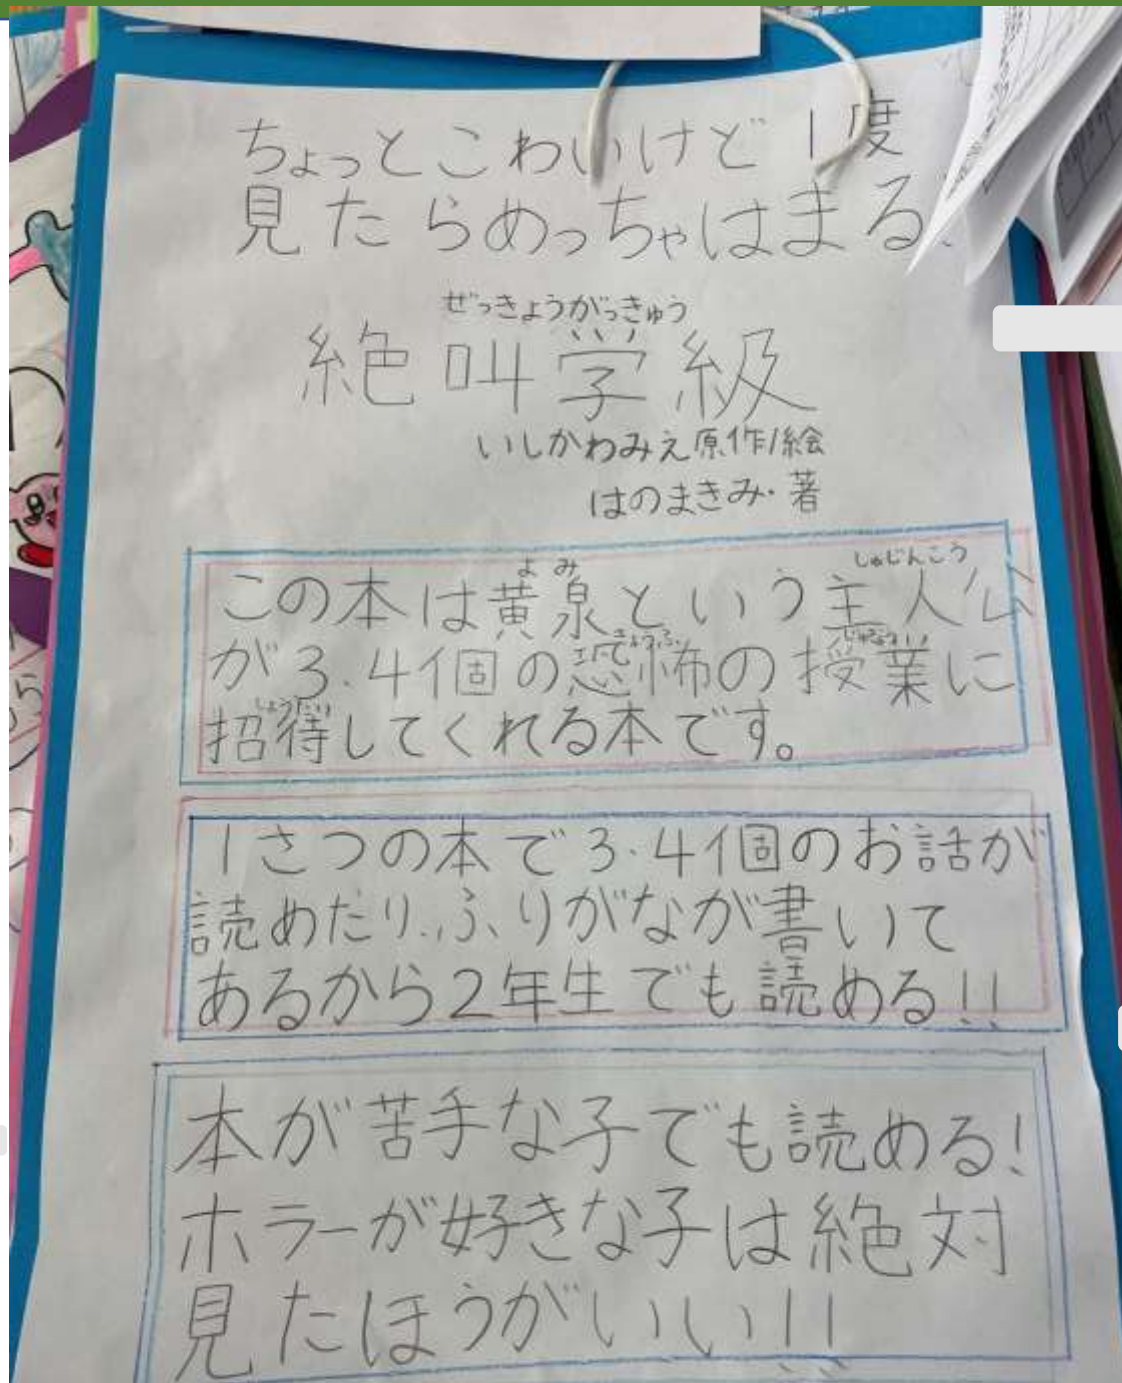 ちょっとこわいけど1度
見たらめっちゃはまる
ぜっきょうがっきゅう
絶叫学級
いしかわみえ原作/絵
はのまきみ・著
よみ しゅじんこう
この本は黄泉という主人公
きょうふ じゅぎょう
が3.4個の恐怖の授業に
しょうたい
招待してくれる本です。
1さつの本で3.4個のお話が
読めたり、ふりがなが書いて
あるから2年生でも読める!!
本が苦手な子でも読める!
ホラーが好きな子は絶対
見たほうがいい!!